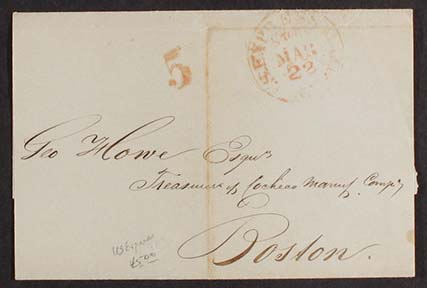 5
U.S. EXPRESS MAIL
MAR
22
Geo Howe Esqr
Treasurer of Cocheco Manuf. Compy
Boston.
US Express
45.00